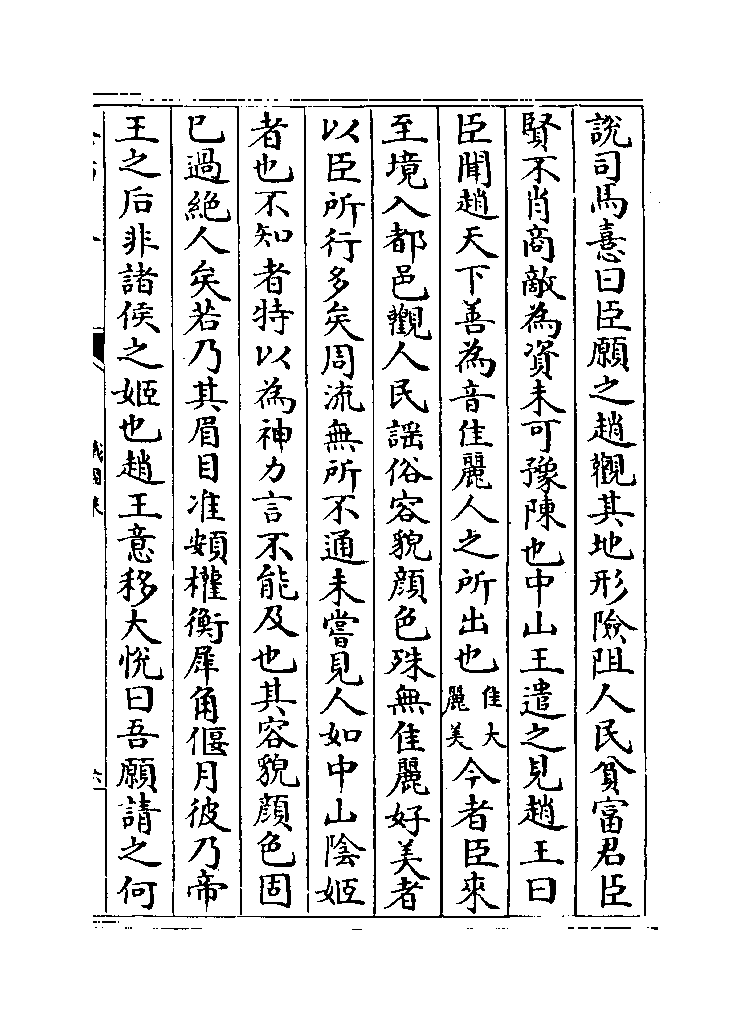 說司馬憙曰臣願之趙觀其地形險阻人民貧富君臣
賢不肖商敵為資未可豫陳也中山王遣之見趙王曰
臣聞趙天下善為音佳麗人之所出也佳大麗美今者臣來
至境入都邑觀人民謡俗容貌顔色殊無佳麗好美者
以臣所行多矣周流無所不通未嘗見人如中山陰姬
者也不知者特以為神力言不能及也其容貌顔色固
已過絶人矣若乃其眉目准頞權衡犀角偃月彼乃帝
王之后非諸侯之姬也趙王意移大悅曰吾願請之何
戰國策
六